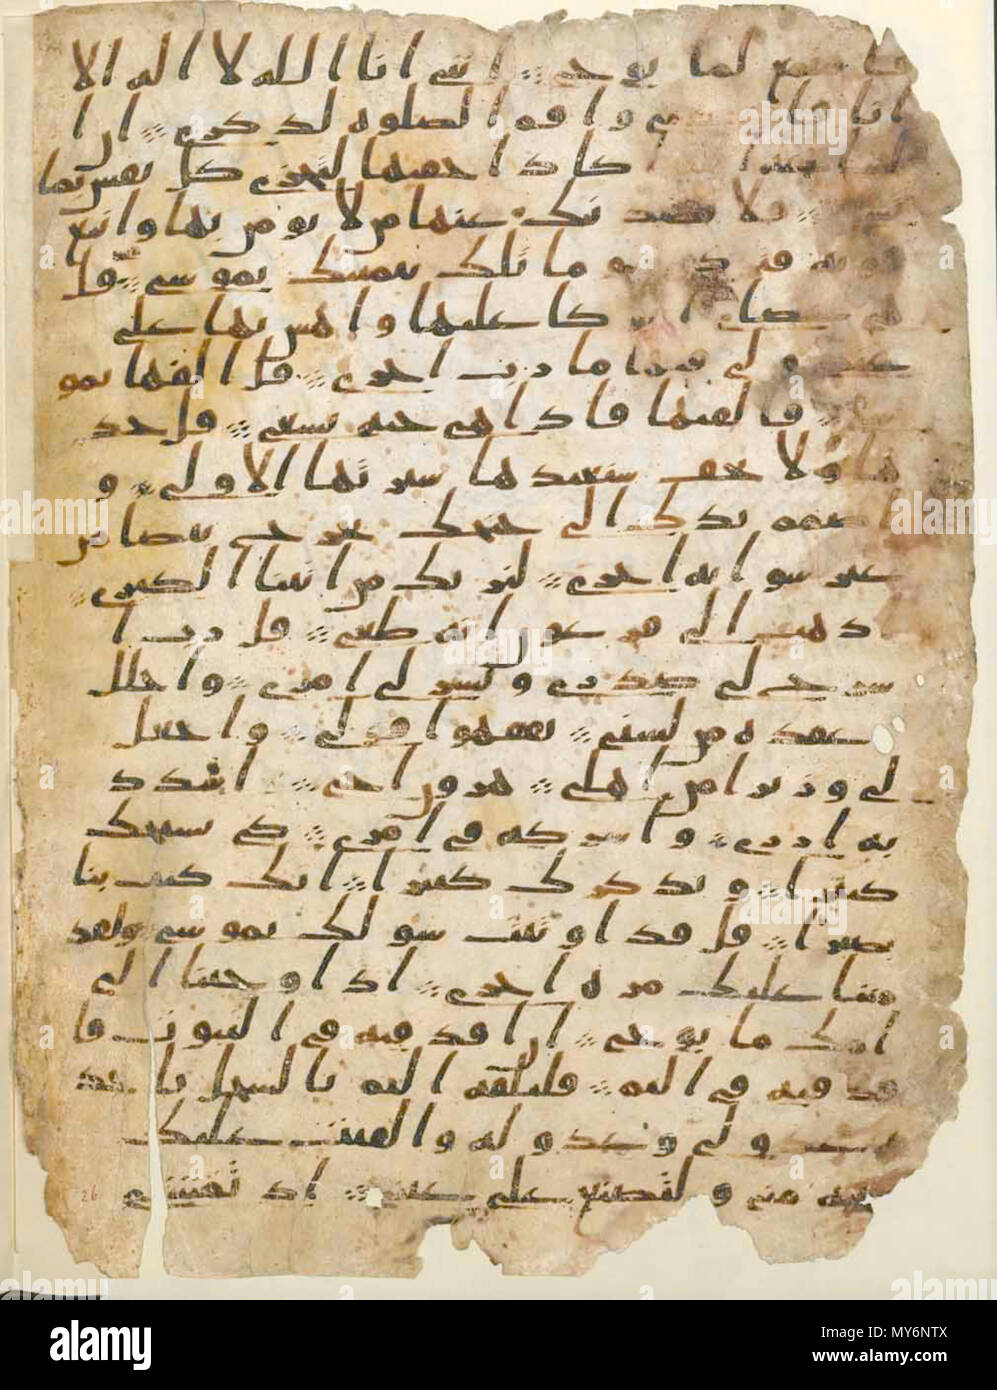 فاستمع لما يوحى ؞ انني انا الله لا اله الا
انا فاعبدني واقم الصلوه لذكري ؞ ان ا
لساعه اكاد اخفيها لتجزى كل نفس بما
تسعى ؞ فلا يصدنك عنها من لا يومن بها واتبع
هويه فتردى وما تلك بيمينك يموسى ؞ قل
هي عصاي اتوكا عليها واهش بها على
غنمي ولي فيها مارب اخرى ؞ قل القها يمو
سى ؞ فالقيها فاذا هي حيه تسعى ؞ قل خذ
ها ولا تخف سنعيدها سيرتها الاولى ؞ و
اضمم يدك الى جنحك تخرج بيضا من
غير سو ايه اخرى ؞ لنريك من ايتنا الكبرى ؞
اذهب الى فرعون انه طغى ؞ قل رب ا
شرح لي صدري ؞ ويسر لي امري ؞ واحلل
عقده من لسني ؞ يفقهوا قولي ؞ واجعل
لي وزيرا من اهلي ؞ هرون اخي ؞ اشدد
به ازري ؞ واشركه في امري ؞ كي نسبحك
كثيرا ؞ ونذكرك كثيرا ؞ انك كنت بنا
بصيرا ؞ قل قد اوتيت سولك يموسى ؞ ولقد
مننا عليك مره اخرى ؞ اذ اوحينا الى
امك ما يوحى ؞ ان اقذفيه في التبوت فا
قذفيه في اليم ؞ فليلقه اليم بالسحل ياخذ
ه عدو لي وعدو له والقيت عليك
محبه مني ولتصنع على عيني ؞ اذ تمشي
26
alamy
Image ID: MY6NTX
www.alamy.com